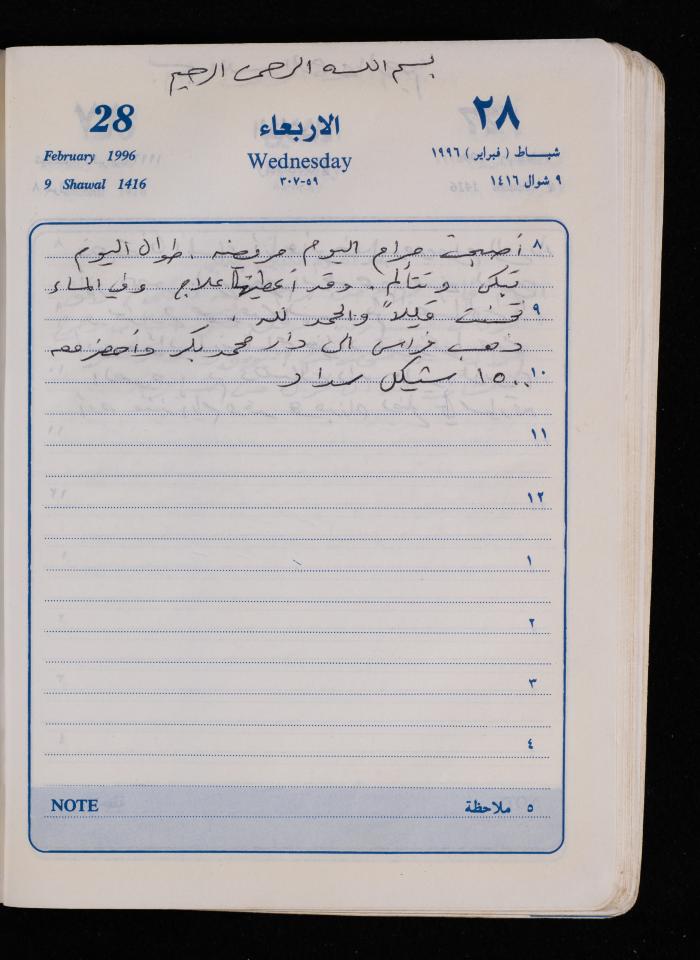 بسم الله الرحمن الرحيم
28
February 1996
9 Shawal 1416
الاربعاء
Wednesday
٣٠٧-٥٩
٢٨
شباط ( فبراير ) ١٩٩٦
٩ شوال ١٤١٦
٨ أصبحت مرام اليوم مريضه . طوال اليوم
تبكي وتتألم . وقد أعطيتها علاج وفي المساء
٩ تحسنت قليلاً والحمد لله .
ذهب فراس الى دار محمد بكر وأحضر معه
١٠ ١٥٠٠ شيكل سداد
١١
١٢
١
٢
٣
٤
NOTE
٥ ملاحظة